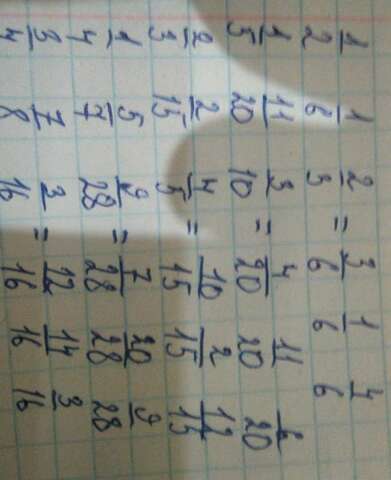 1/2 1/6 2/3 = 3/6 1/6 4/6
1/5 11/20 3/10 = 4/20 11/20 6/20
2/3 2/15 4/5 = 10/15 2/15 12/15
1/4 5/7 9/28 = 7/28 20/28 9/28
3/4 7/8 3/16 = 12/16 14/16 3/16